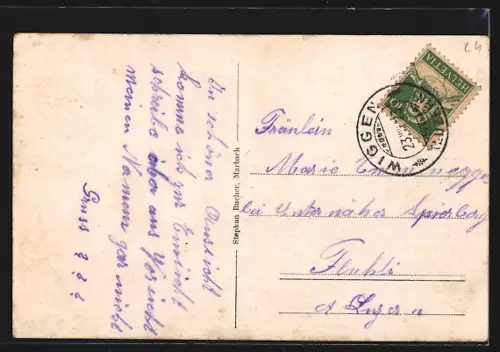 In schöner Aussicht
komme ich zur Einsicht
schreibe aber aus Vorsicht
meinen Namen gar nicht
Gruss ? ? ?
Stephan Bucher, Marbach
HELVETIA
WIGGEN
23
Fräulein
Marie
bei Unternäher
Flühli
Kt Luzern